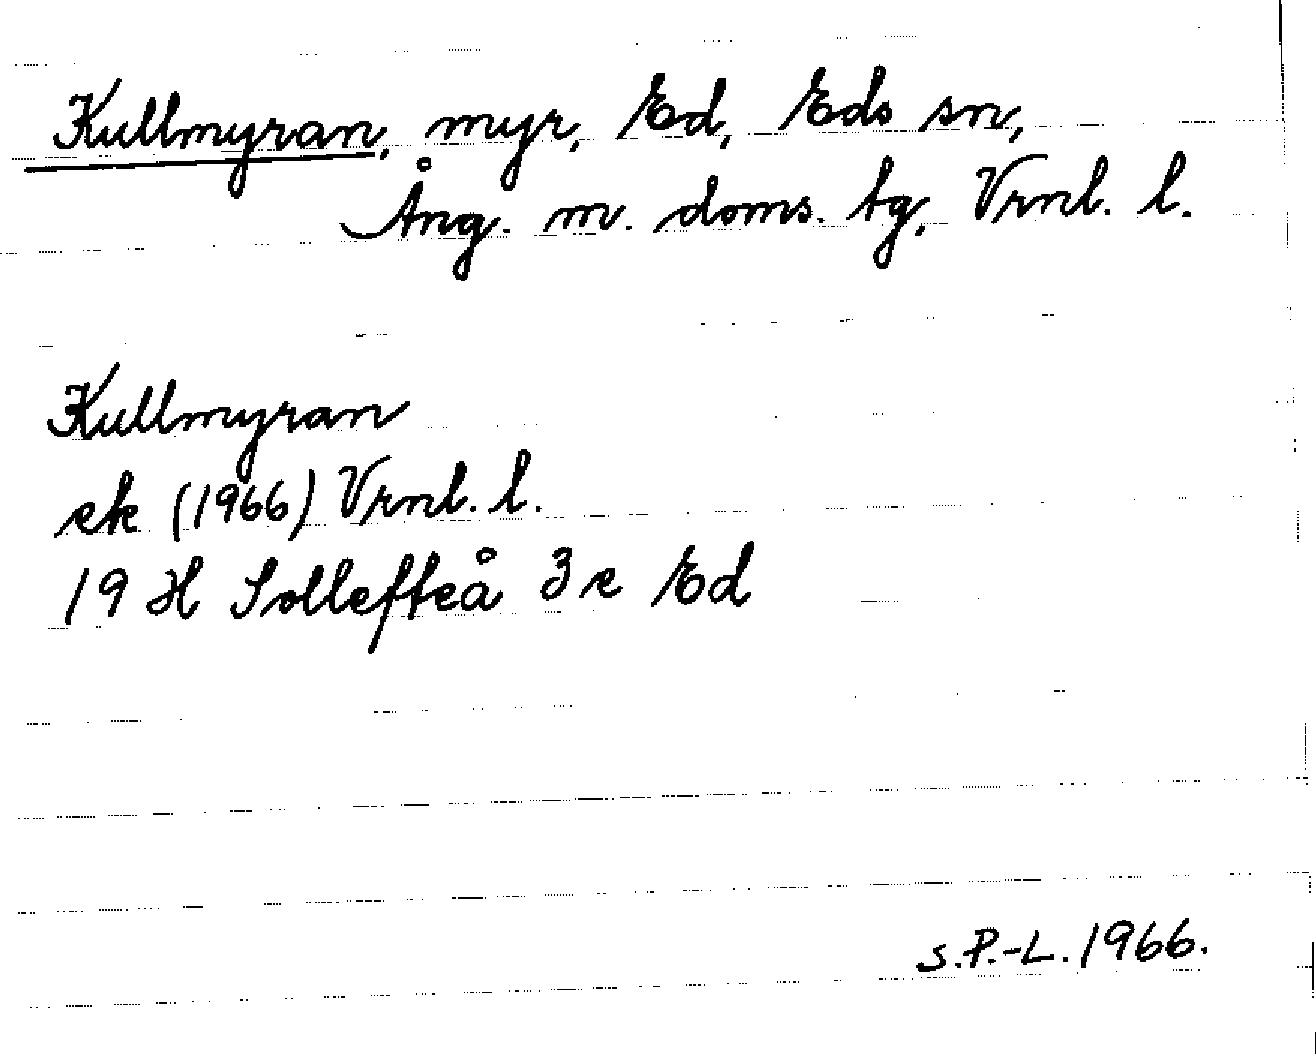 Kullmyran, myr, Ed, Eds sn,
Ång. m. doms. tg, Vrnl. l.
Kullmyran
ek (1966) Vrnl. l.
19 H Sollefteå 3 e Ed
S.P.-L. 1966.